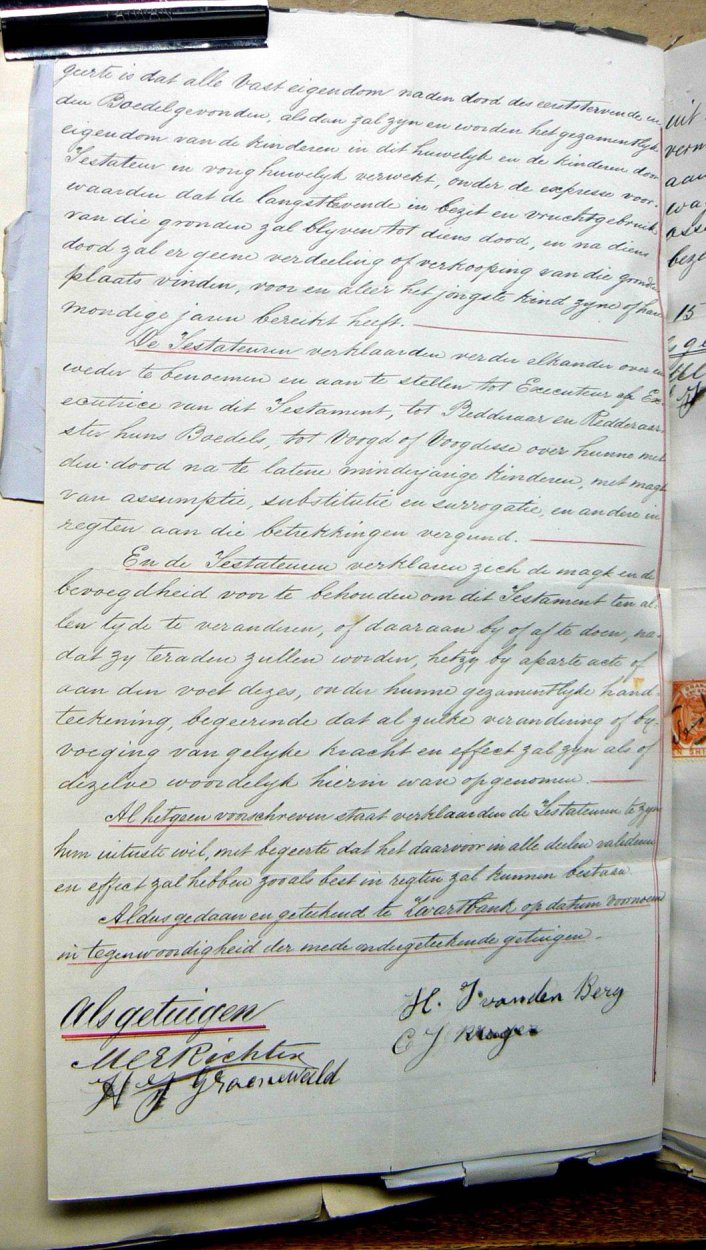 geerte is dat alle Vast eigendom na den dood des eerststervende in
den Boedel gevonden, alsdan zal zyn en worden het gezamentlyk
eigendom van de kinderen in dit huwelyk en de kinderen door
Testateur in vorig huwelyk verwekt, onder de expresse voor-
waarden dat de langstlevende in bezit en vruchtgebruik
van die gronden zal blyven tot diens dood, en na diens
dood zal er geene verdeeling of verkooping van die gronden
plaats vinden, voor en aleer het jongste kind zyne of hare
mondige jaren bereikt heeft.
De Testateuren verklaarden verder elkander over en
weder te benoemen en aan te stellen tot Executeur of Ex-
ecutrice van dit Testament, tot Redderaar en Redderaar-
ster huns Boedels, tot Voogd of Voogdesse over hunne met
den dood na te latene minderjarige kinderen, met magt
van assumptie, substitutie en surrogatie, en andere in
regten aan die betrekkingen vergund.
En de Testateuren verklaren zich de magt en de
bevoegdheid voor te behouden om dit Testament ten al-
len tyde te veranderen, of daaraan by of af te doen, na-
dat zy te raden zullen worden, hetzy by aparte acte of
aan den voet dezes, onder hunne gezamentlyke hand-
teekening, begeerende dat al zulke verandering of by-
voeging van gelyke kracht en effect zal zyn als of
dezelve woordelyk hierin ware opgenomen.
Al hetgeen voorschreven staat verklaarden de Testateuren te zyn
hun uiterste wil, met begeerte dat het daarvoor in alle deelen valideeren
en effect zal hebben zoo als best in regten zal kunnen bestaan.
Aldus gedaan en geteekend te Zwartbank op datum voornoemd
in tegenwoordigheid der mede ondergeteekende getuigen.
Als getuigen
H. J van den Berg
C J Kruger
M C E Richter
H J Groenewald
uit
verm
aan
wa
asse
beze
15